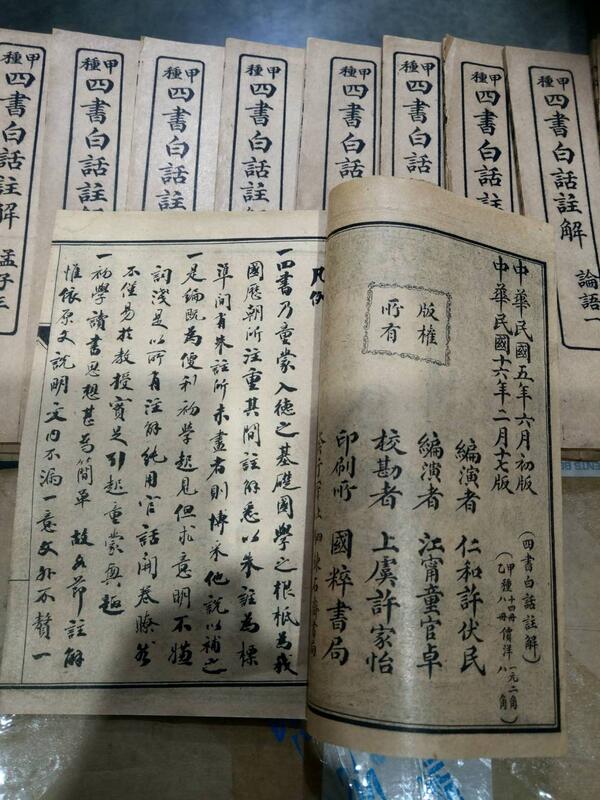 甲種 四書白話註解 論語一
甲種 四書白話註
甲種 四書白話註
甲種 四書白話註
甲種 四書白話註解
甲種 四書白話註
甲種 四書白話註解
甲種 四書白話註解 孟子三
中華民國五年六月初版
中華民國十六年二月十七版
(四書白話註解)
(甲種十四冊價洋一元二角)
(乙種八冊 八角)
版權
所有
編演者 仁和許伏民
編演者 江甯童官卓
校勘者 上虞許家怡
印刷所 國粹書局
凡例
一四書乃童蒙入德之基礎國學之根柢為我
國歷朝所注重其間註解悉以朱註為標
準間有朱註所未盡者則博采他說以補之
一是編既為便利初學起見但求意明不嫌
詞淺是以所有註解純用官話開卷瞭然
不僅易於教授實足引起童蒙興趣
一初學讀書思想甚為簡單故每節註解
惟依原文說明文內不漏一意文外不贅一